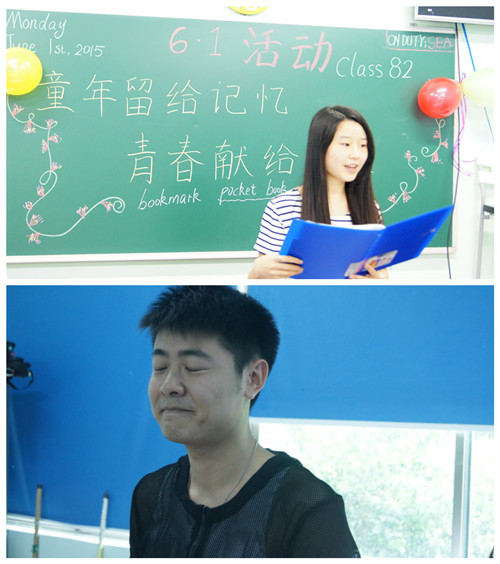 Monday
June 1st, 2015
6·1 活动
ON DUTY: SEA
Class 82
童年留给记忆
青春献给
bookmark pocket book